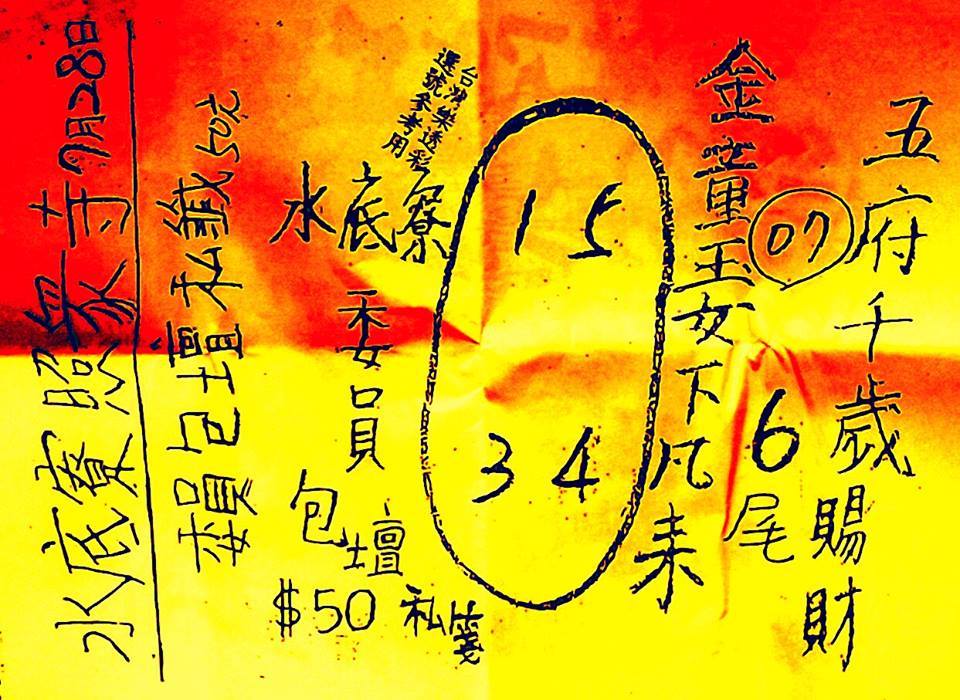 五府千歲賜財
07
6尾
金童玉女下凡来
15
34
台灣樂透彩
選號參考用
水底寮
委員
包壇
$50 私箋
委員包壇私籤50元
水底寮照眾寺7月28日